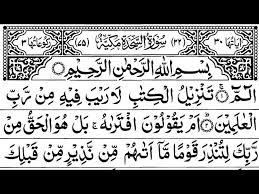 اٰيَاتُهَا ٣٠ (٣٢) سُوْرَةُ السَّجْدَةِ مَكِّيَّةٌ (٧٥) رُكُوْعَاتُهَا ٣
بِسْمِ اللهِ الرَّحْمٰنِ الرَّحِيْمِ
الٓمّٓ ۚ﴿١﴾ تَنْزِيْلُ الْكِتٰبِ لَا رَيْبَ فِيْهِ مِنْ رَّبِّ
الْعٰلَمِيْنَ ﴿٢﴾ اَمْ يَقُوْلُوْنَ افْتَرٰىهُ ۚ بَلْ هُوَ الْحَقُّ مِنْ
رَّبِّكَ لِتُنْذِرَ قَوْمًا مَّاۤ اَتٰىهُمْ مِّنْ نَّذِيْرٍ مِّنْ قَبْلِكَ